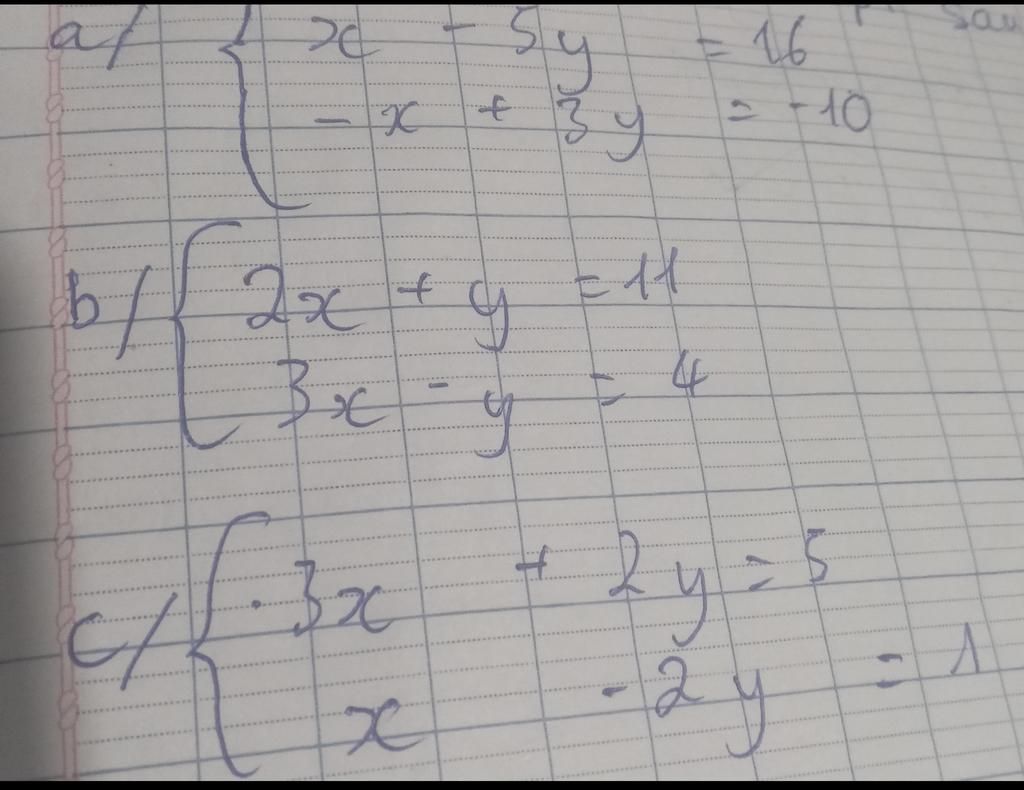 a/ { x - 5y = 16
- x + 3y = -10
b/ { 2x + y = 11
3x - y = 4
c/ { . 3x + 2y = 5
x - 2y = 1